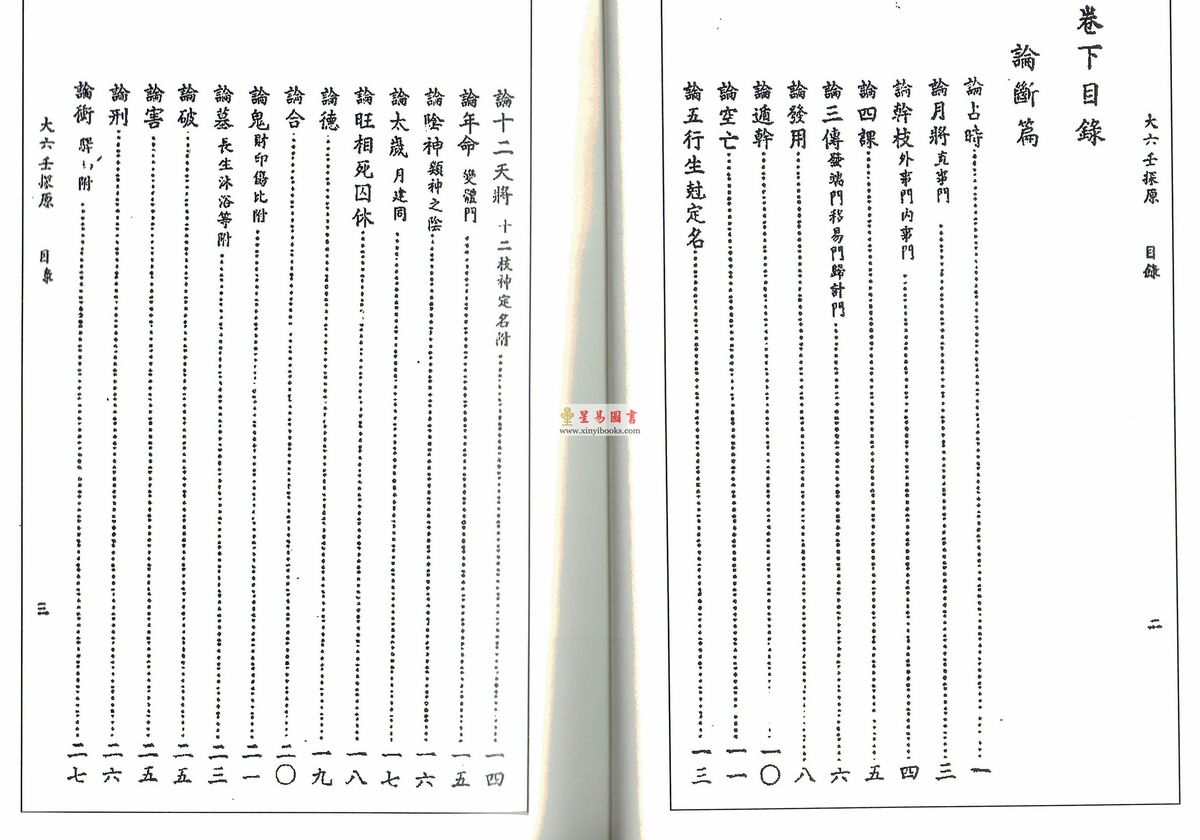 大六壬探原 目錄 二
卷下目錄
論斷篇
論占時 一
論月將 直事門 三
論幹枝 外事門內事門 四
論四課 五
論三傳 發端門移易門歸計門 六
論發用 八
論遁幹 一〇
論空亡 一一
論五行生尅定名 一三
論十二天將 十二枝神定名附 一四
論年命 變體門 一五
論陰神 類神之陰 一六
論太歲 月建同 一七
論旺相死囚休 一八
論德 一九
論合 二〇
論鬼 財印傷比附 二一
論墓 長生沐浴等附 二三
論破 二五
論害 二五
論刑 二六
論衝 附 二七
大六壬探原 目錄 三
星易圖書
www.xinyibooks.com